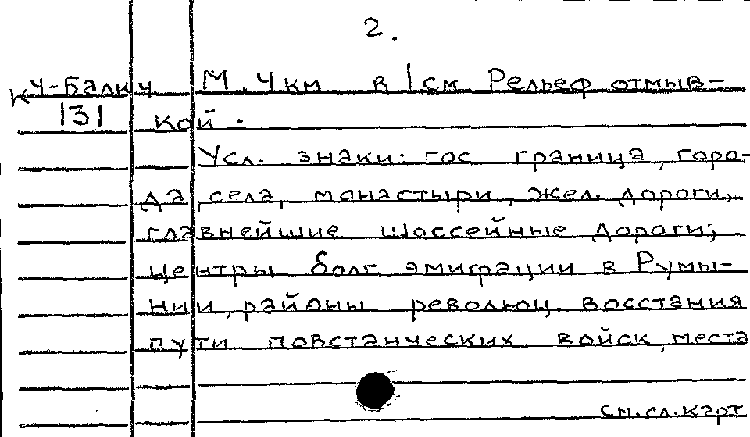 2.
К4-Балк4 М. 4км в 1см Рельеф отмыв-
131 кой.
Усл. знаки: гос граница, горо-
да, села, монастыри, жел. дороги,
главнейшие шоссейные дороги;
центры болг эмиграции в Румы-
нии, районы революц. восстания
пути повстанческих войск, места
см.сл.карт